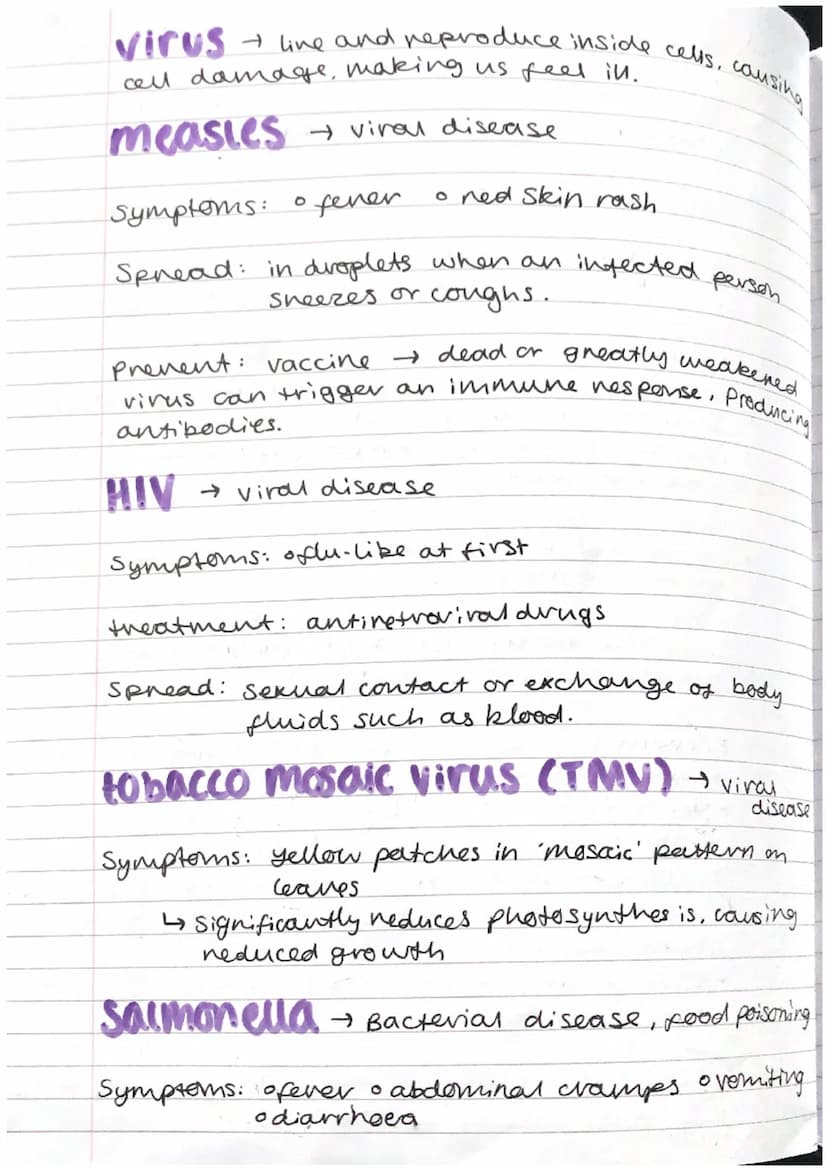 virus → live and reproduce inside cells, causing
cell damage, making us feel ill.
measles → viral disease
Symptoms: o fever o red skin rash
Spread: in droplets when an infected person
sneezes or coughs.
Prevent: vaccine → dead or greatly weakened
virus can trigger an immune response, producing
antibodies.
HIV → viral disease
Symptoms: o flu-like at first
treatment: antiretroviral drugs
Spread: sexual contact or exchange of body
fluids such as blood.
tobacco mosaic virus (TMV) → viral
disease
Symptoms: yellow patches in 'mosaic' pattern on
leaves
↳ significantly reduces photosynthesis, causing
reduced growth
Salmonella → Bacterial disease, food poisoning
Symptoms: o fever o abdominal cramps o vomiting
o diarrhoea